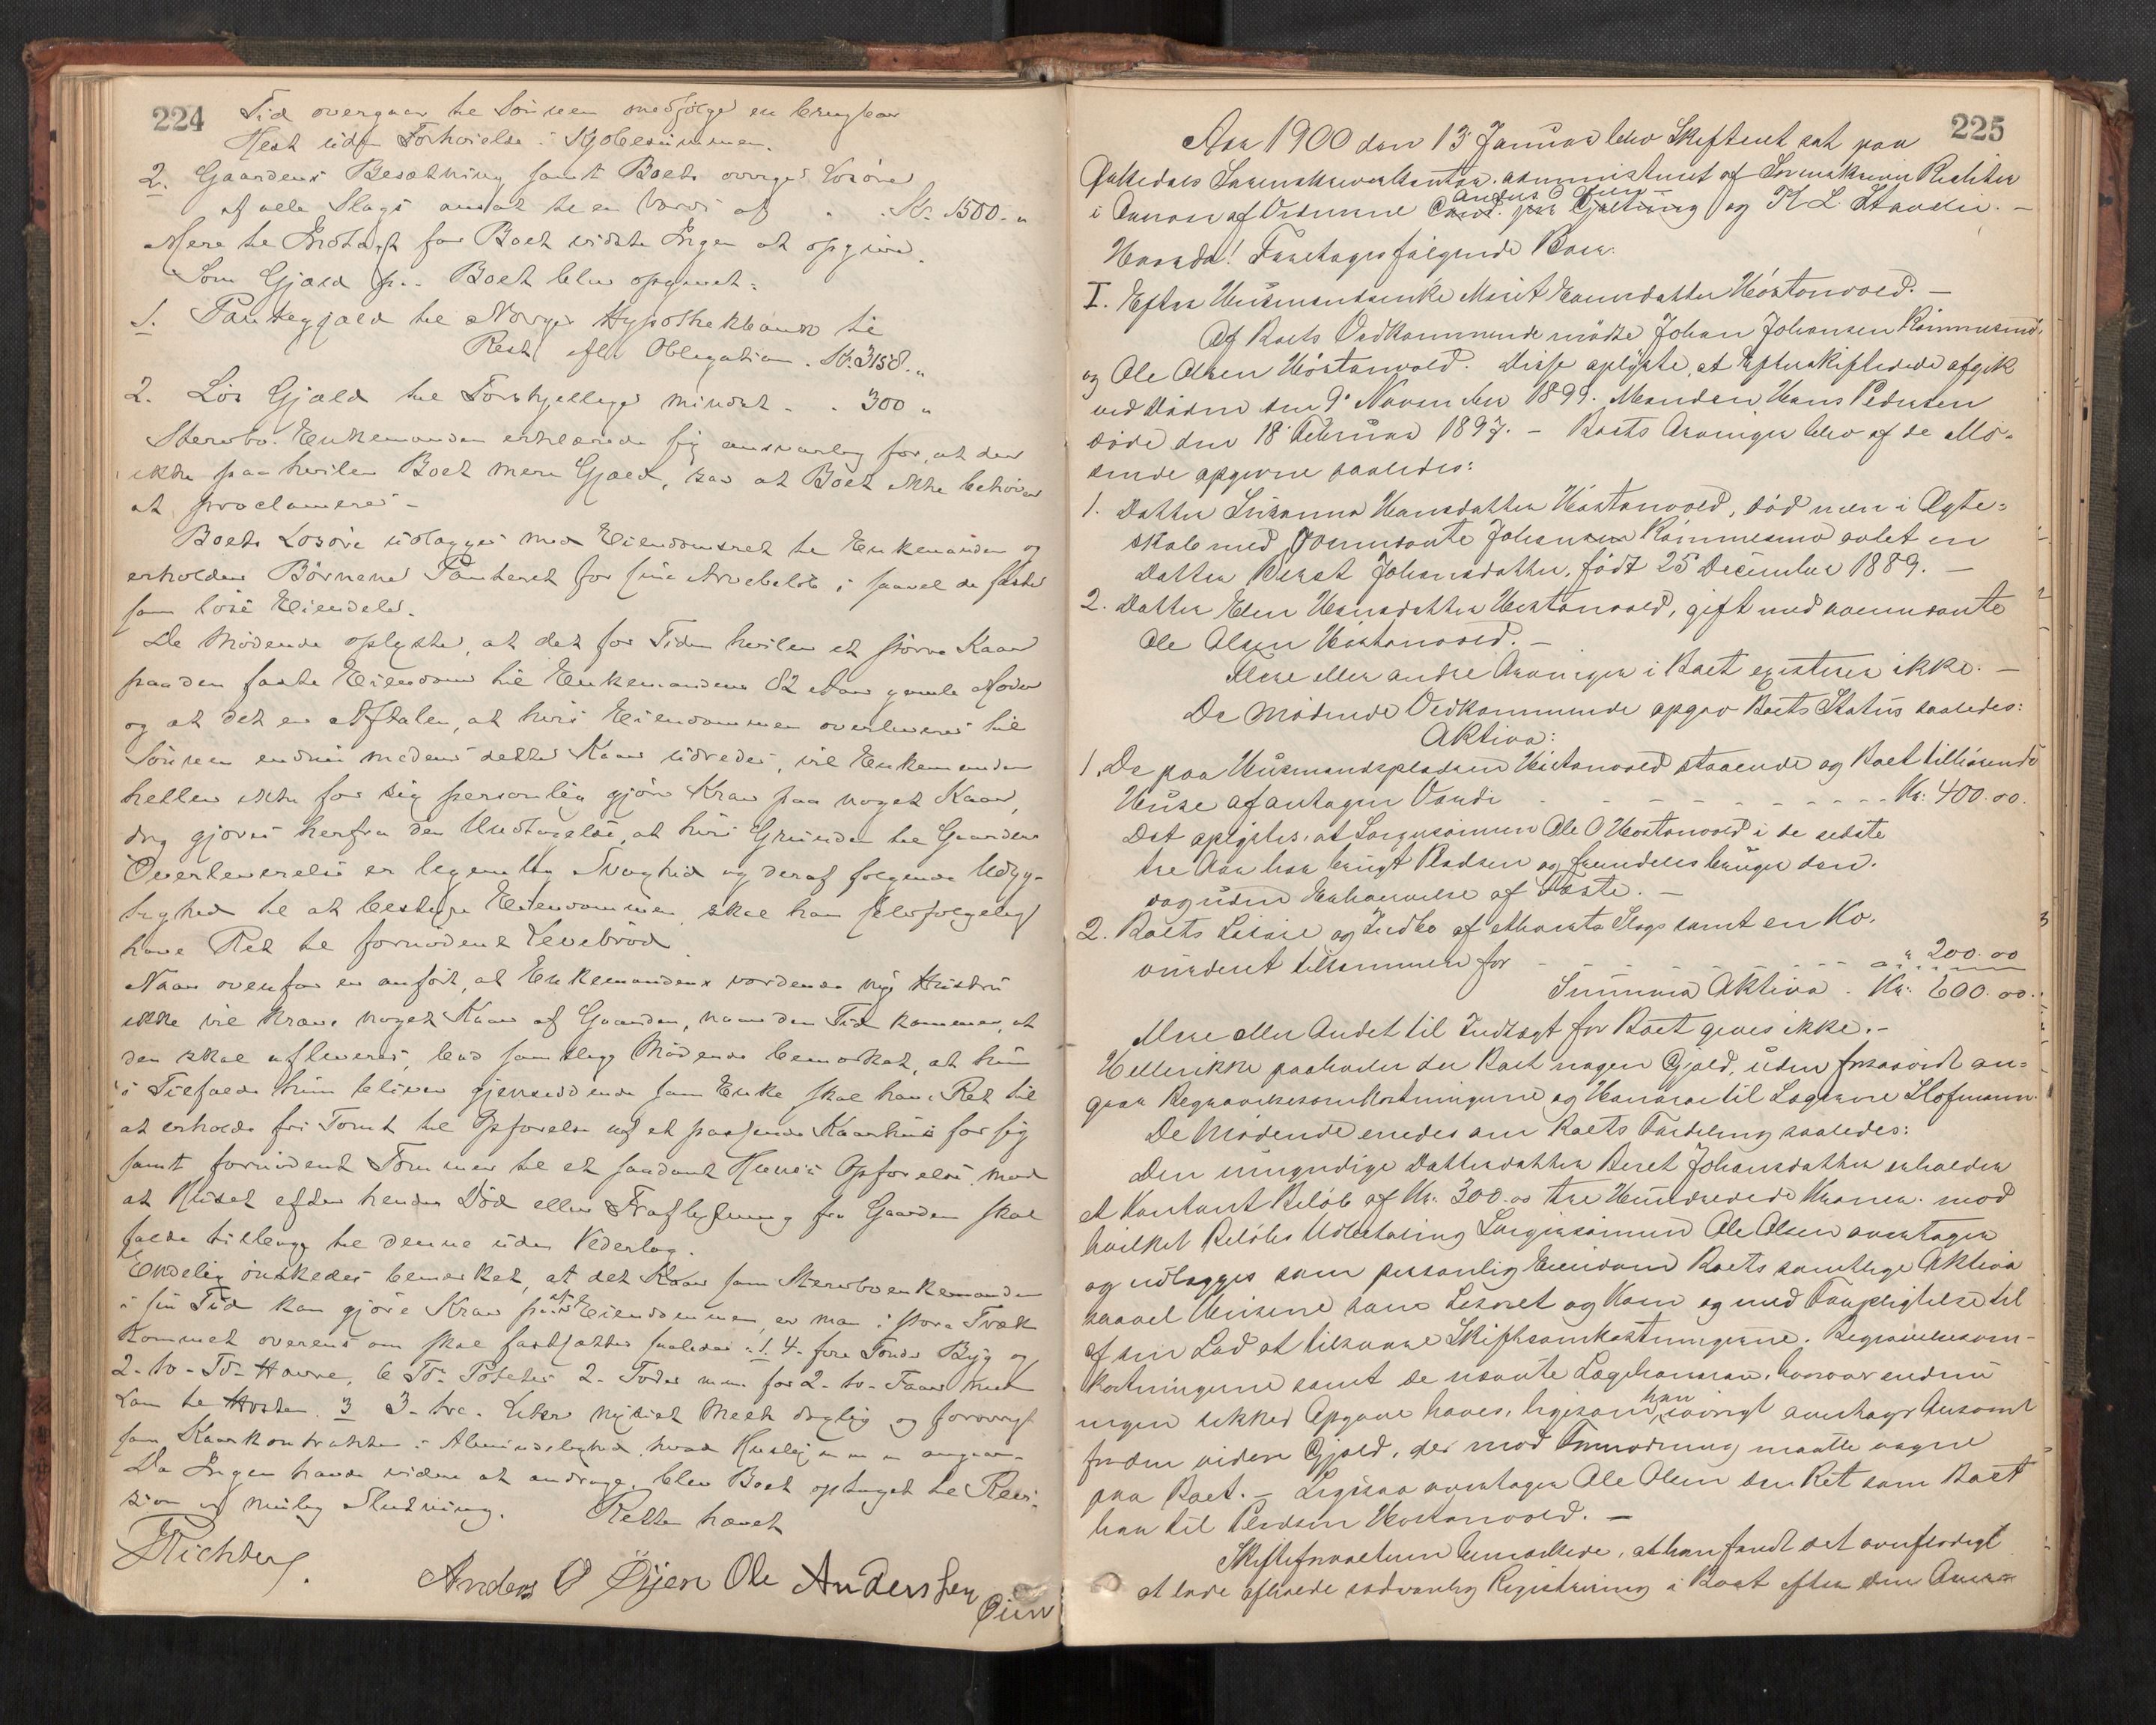 224
Tid overgaar til Sønnen medfølger en brugbar
Hest uden Forhøielse i Kjøbesummen.
2. Gaardens Besætning samt Boets øvrige Løsøre
af alle Slags ansat til en Værdi af . . Kr. 1500. "
Mere til Indtægt for Boet vidste Ingen at opgive.
Som Gjæld paa Boet blev opgivet:
1. Pantegjæld til Norges Hypothekbank til
Rest efter Obligation . Kr. 3158. "
2. Løs Gjæld til Forskjellige mindst . . 300 "
Stervbo-Enkemanden erklærede sig ansvarlig for, at der
ikke paahviler Boet mere Gjæld, saa at Boet ikke behøver
at proclameres -
Boets Løsøre udlægges med Eiendomsret til Enkemanden og
erholder Børnene Panteret for sine Arvebeløb i saavel de faste
som løse Eiendele.
De Mødende oplyste, at det for Tiden hviler et større Kaar
paa den faste Eiendom til Enkemandens 82 Aar gamle Moder
og at det er Aftalen, at hvis Eiendommen overleveres til
Sønnen endnu medens dette Kaar udredes, vil Enkemanden
heller ikke for sig personlig gjøre Krav paa noget Kaar,
dog gjøres herfra den Undtagelse, at hvis Grunden til Gaardens
Overleverelse er legemlig Svaghed og deraf følgende Udyg-
tighed til at bestyre Eiendommen skal han selvfølgelig
have Ret til fornødent Levebrød.
Naar ovenfor er anført, at Enkemandens vordende ny Hustru
ikke vil kræve noget Kaar af Gaarden, naar den Tid kommer, at
den skal afleveres, bad samtlige Mødende bemærket, at hun
i Tilfælde hun bliver gjensiddende som Enke skal have Ret til
at erholde fri Tomt til Opførelse af et passende Kaarhus for sig
samt fornødent Tømmer til et saadant Huses Opførelse, mod
at Huset efter hendes Død eller Fraflytning fra Gaarden skal
falde tillægge til denne uden Vederlag.
Endelig ønskedes bemærket, at det Kaar som Stervboenkemanden
i sin Tid kan gjøre Krav paa af Eiendommen, er man i store Træk
kommet overens om skal fastsættes saaledes: 1. 4- fire Tønder Byg og
2- to - Tdr Havre, 6 Tdr Poteter 2. Foder m.m. for 2- to - Faar med
Lam til Høsten. 3 3- tre - Liter nysiet Melk daglig og forøvrigt
som Kaarkontrakter i Almindelighed hvad Husly m.m. angaar.
Da Ingen havde videre at andrage, blev Boet optaget til Revi-
sion og mulig Slutning. Retten hævet
Richter.
Anders O Øijen Ole Anderssen
Øien
225
Aar 1900 den 13 Januar blev Skifteret sat paa
Guldals Sorenskriverkontor, administreret af Sorenskriver Richter
Anders O Øien -
i Nærvær af Vidnerne Cand. jur Gjelting og K L Stavdu. -
Hvorda! Foretoges følgende Boer:
I. Efter Husmandsenke Marit Hansdatter Høstonvold. -
Af Boets Vedkommende mødte Johan Johansen Rømmesmo,
og Ole Olsen Høstonvold. Disse oplyste, at Efterskiftedede afgik
ved Døden den 9' November 1899. Manden Hans Pedersen
døde den 18' Februar 1897. - Boets Arvinger blev af de Mø-
dende opgivne saaledes:
1. Datter Susanna Hansdatter Høstonvold, død men i Ægte-
skab med Fornævnte Johansen Rømmesmo avlet en
Datter Beret Johansdatter, født 25 December 1889. -
2. Datter Elen Hansdatter Høstonvold, gift med ovennævnte
Ole Olsen Høstonvold. -
Flere eller andre Arvinger i Boet existerer ikke. -
De Mødende Vedkommende opgav Boets Status saaledes:
Aktiva:
1. De paa Husmandspladsen Høstonvold staaende og Boet tilhørende
Huse af antagen Værdi - - - - - - - - Kr. 400.00.
Det oplystes, at Svigersønnen Ole O Høstonvold i de sidste
tre Aar har brugt Pladsen og fremdeles bruger den.
dog uden Erhvervelse af Fæste. -
2. Boets Løsøre og Indbo af ethvert Slags samt en Ko,
vurderet tilsammen for - - - - - - - " 200.00
Summa Aktiva . Kr. 600.00.
Mere eller Andet til Indtægt for Boet gives ikke. -
Heller ikke paahviler der Boet nogen Gjæld, uden forsaavidt an-
gaar Begravelsesomkostningerne og Honorar til Lægerne Hofmann.
De Mødende enedes om Boets Fordeling saaledes:
Den umyndige Datterdatter Beret Johansdatter erholder
et Kontant Beløb af Kr. 300.00 tre Hundredede Kroner. mod
hvilket Beløbs Udbetaling Svigersønnen Ole Olsen overtager
og udlægges som personlig Eiendom Boets samtlige Aktiva
saavel Husene som Løsøret og Koen og med Forpligtelse til
af sin Lod at tilsvare Skifteomkostningerne, Begravelsesom-
kostningerne samt de nævnte Lægehonorar, hvorover endnu
ingen sikker Opgave haves, ligesom han iøvrigt overtager Ansvaret
for den videre Gjæld, der mod Formodning maatte være
paa Boet. - Ligesaa overtager Ole Olsen den Ret som Boet
har til Pladsen Høstonvold. -
Skifteforvalteren bemærkede, at han fandt det overflødigt
at lade afholde sædvanlig Registrering i Boet efter den Anvi-